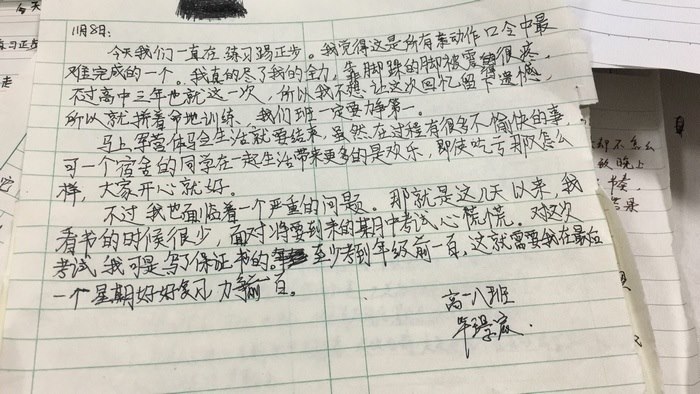 11月8日:
今天我们一直在练习踢正步。我觉得这是所有靠动作口令中最
难完成的一个。我真的尽了我的全力,靠脚踝的脚被震的很疼,
不过高中三年也就这一次,所以我不想让这次回忆留下遗憾,
所以就拼着命地训练,我们班一定要力争第一。
马上军营体验生活就要结束,虽然在过程有很多不愉快的事,
可一个宿舍的同学在一起生活带来更多的是欢乐,即使吃亏那又怎么
样,大家开心就好。
不过我也面临着一个严重的问题。那就是这几天以来,我
看书的时候很少,面对将要到来的期中考试心慌慌。对这次
考试我可是写了保证书的。至少考到年级前一百,这就需要我在最后
一个星期好好复习力争前百。
高一八班
今天
练习正步
却不怎么
晚上